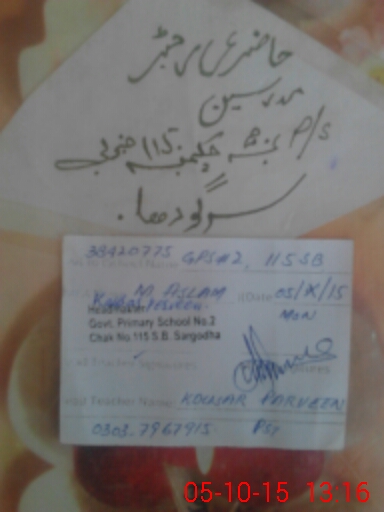 حاضری رجسٹر
مدرسین
P/S نمبر 2 چک نمبر 115 جنوبی
سرگودھا.
38420775 GPS#2, 115 SB
M ASLAM
Date 05/X/15
MON
Headmaster
Govt. Primary School No.2
Chak No.115 S.B. Sargodha
Teacher Name KOUSAR PARVEEN
0303-7967915 PST
05-10-15 13:16